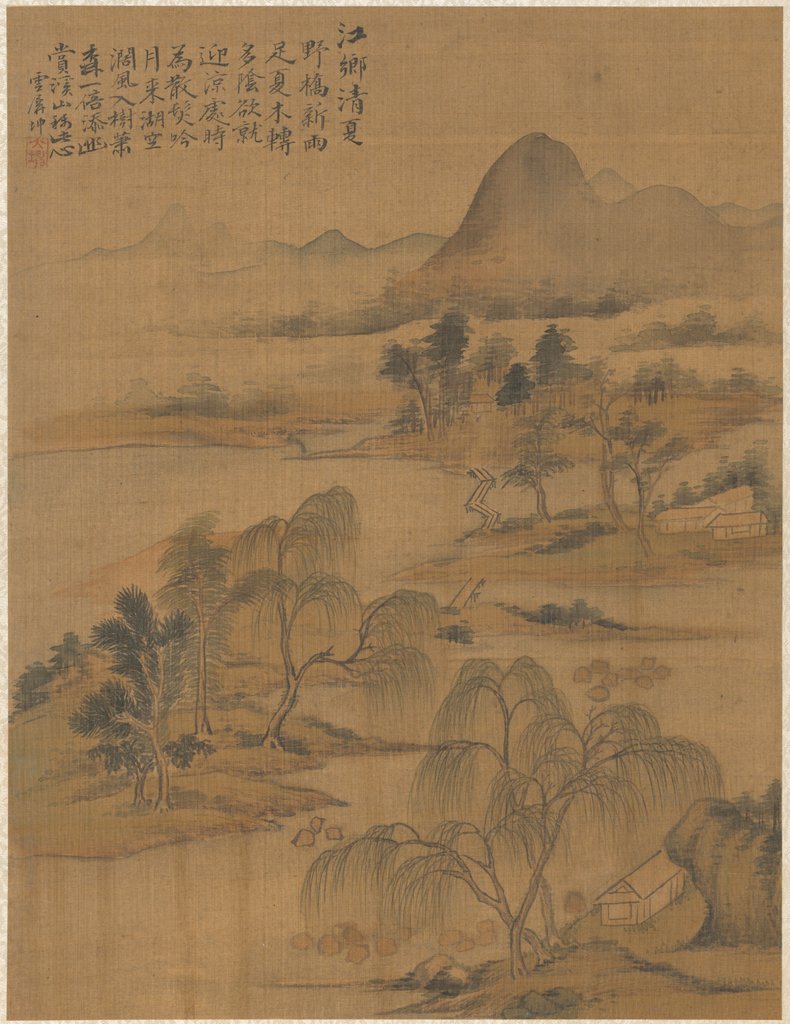 江鄉清夏
野橋新雨
足夏木轉
多陰欲就
迎涼處時
為散髮吟
月来湖空
濶風入樹蕭
森一倍添幽
賞溪山稱心
雪屏坤